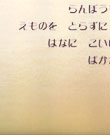 らんぼう
えものを　とらずに
はなに　こい
ばか